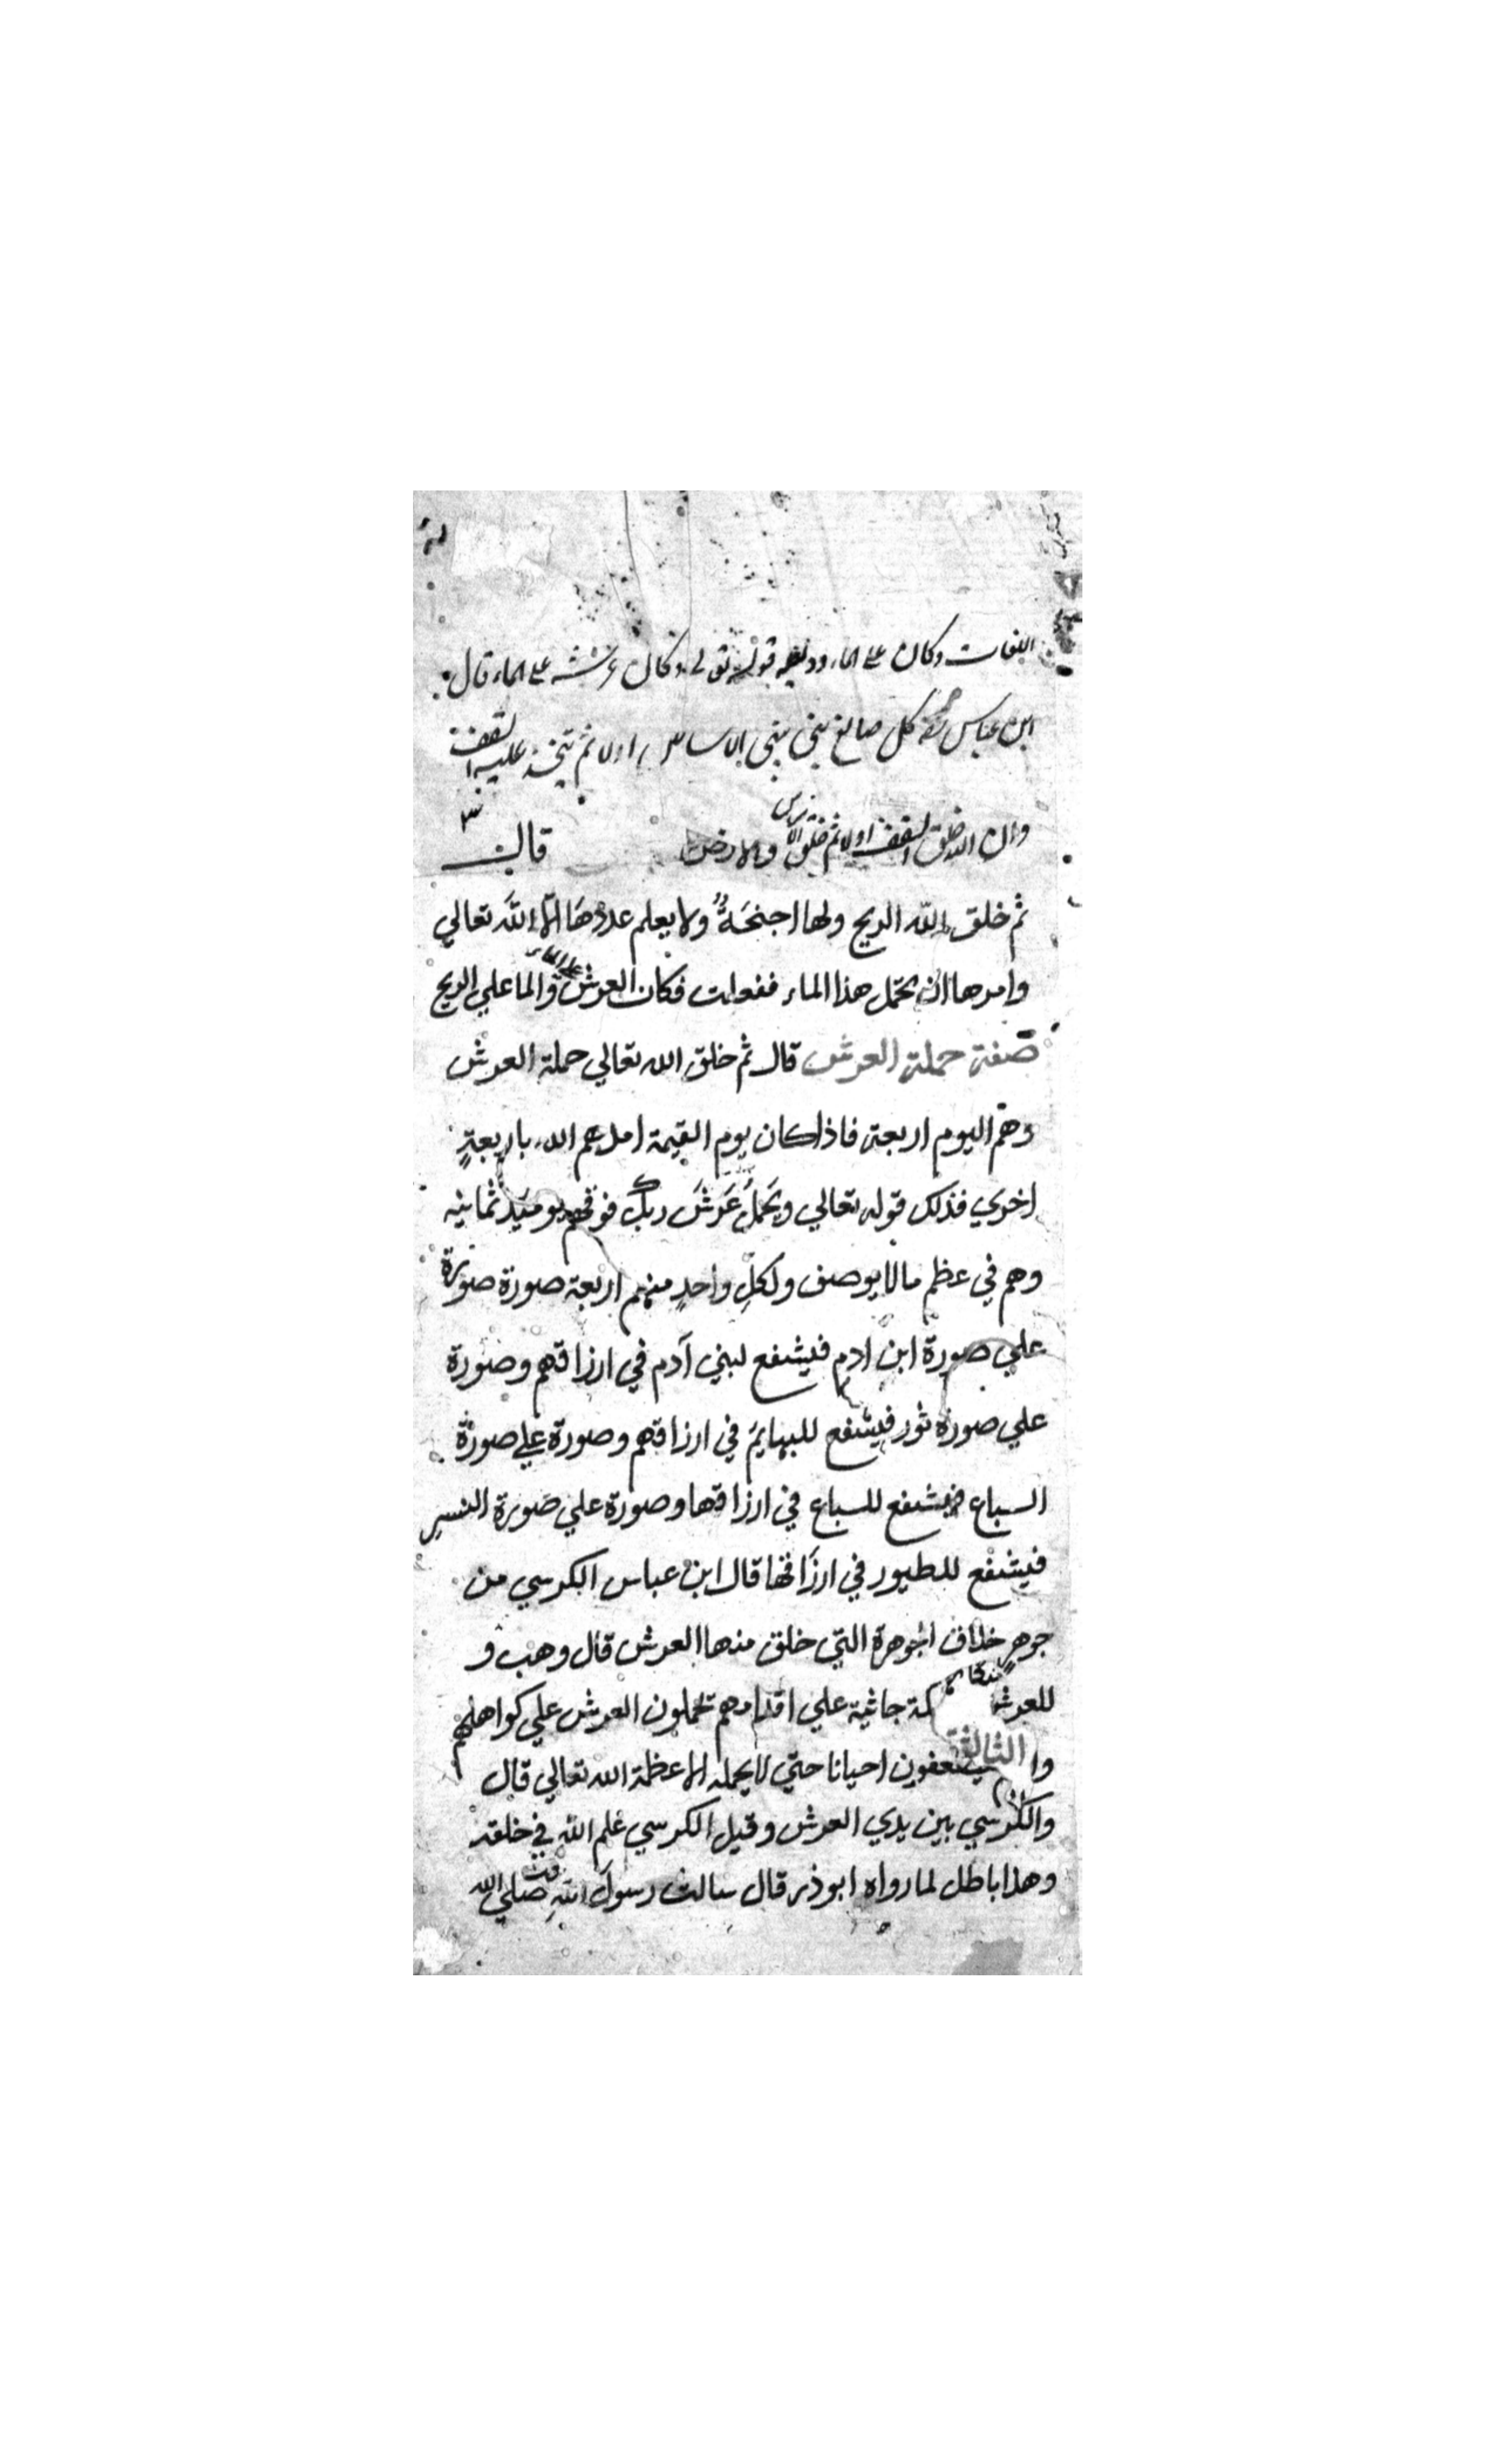 اللغات وكان على الماء وذلك قوله تعالى وكان عرشه على الماء قال
ابن عباس كل صانع يبني يبني الاساس اولا ثم يتخذ عليه السقف
وان الله خلق السقف اولا ثم خلق والارض قال
ثم خلق الله الريح ولها اجنحةٌ ولا يعلم عددها الا الله تعالي
وامرها ان تحمل هذا الماء ففعلت فكان العرش على الماء والما علي الريح
صفة حملة العرش قال ثم خلق الله تعالي حملة العرش
وهم اليوم اربعة فاذا كان يوم القيمة امدهم الله باربعةٍ
اخري فذلك قوله تعالي ويحمل عرش ربك فوقهم يوميذ ثمانيه
وهم في عظم ما لا يوصف ولكل واحدٍ منهم اربعة صورة صورة
علي صورة ابن ادم فيشفع لبني آدم في ارزاقهم وصورة
علي صورة ثور فيشفع للبهايم في ارزاقهم وصورة علي صورة
السباع فيشفع للسباع في ارزاقها وصورة علي صورة النسر
فيشفع للطيور في ارزاقها قال ابن عباس الكرسي من
جوهرٍ خلاف الجوهرة التي خلق منها العرش قال وهب و
للعرش جاثية علي اقدامهم يحملون العرش علي كواهلهم
احيانا حتي لا يحمله الا عظمة الله تعالي قال
والكرسي بين يدي العرش وقيل الكرسي علم الله في خلقه
وهذا باطل لما رواه ابو ذر قال سالت رسول الله صلي الله